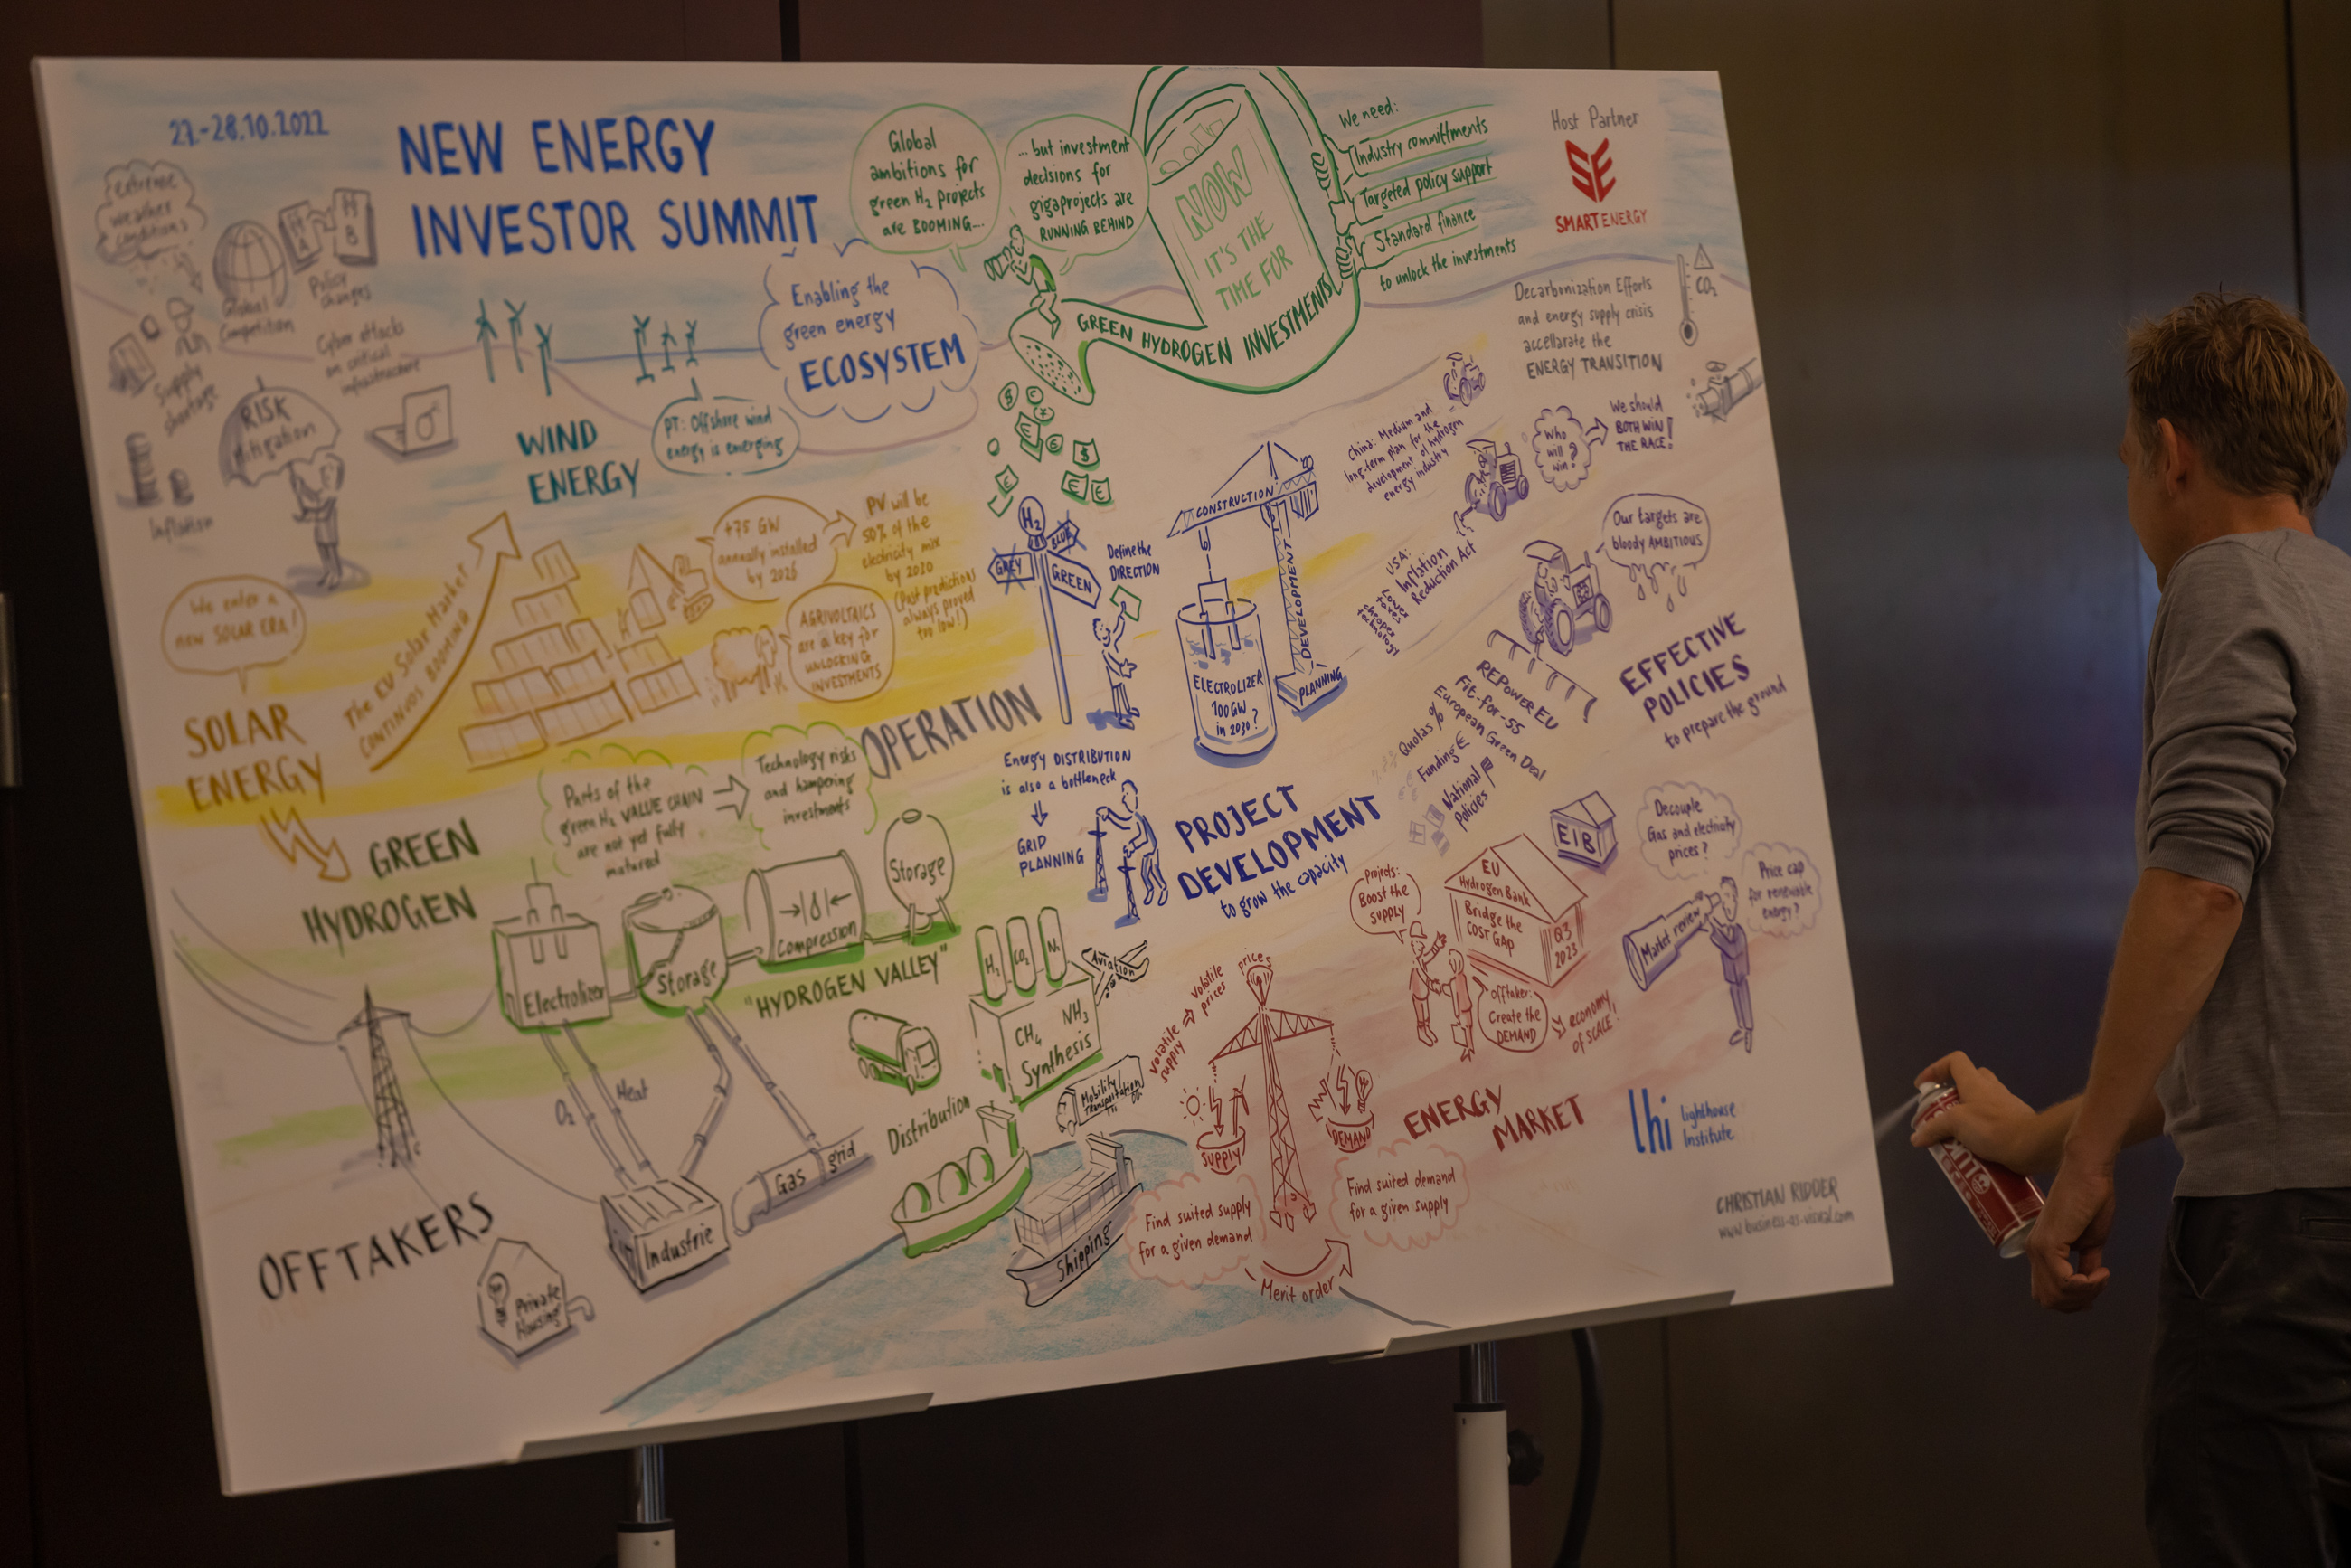 27.-28.10.2022
NEW ENERGY
INVESTOR SUMMIT
extreme
weather
conditions
Global
Competition
Policy
changes
Supply
shortage
Cyber attacks
on critical
infrastructure
RISK
Mitigation
Inflation
WIND
ENERGY
PT: Offshore wind
energy is emerging
Enabling the
green energy
ECOSYSTEM
Global
ambitions for
green H₂ projects
are BOOMING...
... but investment
decisions for
gigaprojects are
RUNNING BEHIND
NOW
IT'S THE
TIME FOR
GREEN HYDROGEN INVESTMENTS
We need:
Industry committments
Targeted policy support
Standard finance
to unlock the investments
Host Partner
SE
SMARTENERGY
Decarbonization Efforts
and energy supply crisis
accellarate the
ENERGY TRANSITION
CO₂
We enter a
new SOLAR ERA!
SOLAR
ENERGY
The EU Solar Market
CONTINUOS BOOMING
+75 GW
annually installed
by 2026
PV will be
50% of the
electricity mix
by 2030
(Past predictions
always proved
too low!)
AGRIVOLTAICS
are a key for
UNLOCKING
INVESTMENTS
OPERATION
H₂
GREY
BLUE
GREEN
Define the
DIRECTION
CONSTRUCTION
DEVELOPMENT
PLANNING
ELECTROLIZER
100GW
in 2030?
Energy DISTRIBUTION
is also a bottleneck
GRID
PLANNING
PROJECT
DEVELOPMENT
to grow the capacity
China: Medium and
long-term plan for the
development of hydrogen
energy industry
Who
will
win?
We should
BOTH WIN
THE RACE!
USA:
Inflation
Reduction Act
Lower
taxes
cheaper
technology
Our targets are
bloody AMBITIOUS
REPowerEU
Fit-for-55
European Green Deal
Quotas %
Funding €
National
Policies
EFFECTIVE
POLICIES
to prepare the ground
GREEN
HYDROGEN
Parts of the
green H₂ VALUE CHAIN
are not yet fully
matured
Technology risks
and hampering
investments
Electrolizer
Storage
Compression
Storage
"HYDROGEN VALLEY"
H₂
CO₂
N₂
CH₄
NH₃
Synthesis
Aviation
Mobility/
Transportation
Distribution
Shipping
O₂
Heat
Gas grid
Industrie
Private
Housing
OFFTAKERS
Volatile
supply
volatile
prices
prices
SUPPLY
DEMAND
Find suited supply
for a given demand
Find suited demand
for a given supply
Merit order
ENERGY
MARKET
Projects:
Boost the
SUPPLY
EU
Hydrogen Bank
Bridge the
COST GAP
Q3
2023
EIB
Offtaker:
Create the
DEMAND
economy
of SCALE!
Decouple
Gas and electricity
prices?
Price cap
for renewable
energy?
Market review
lhi
Lighthouse
Institute
CHRISTIAN RIDDER
www.business-as-visual.com